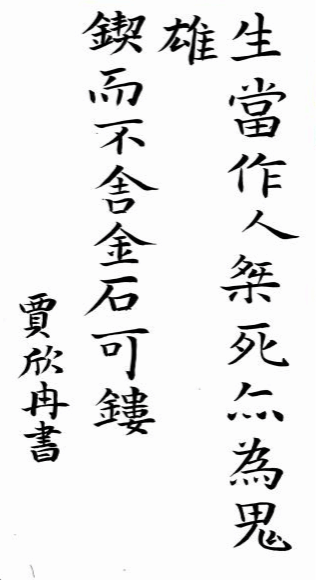 生當作人桀死亦為鬼
雄
鍥而不舍金石可鏤
賈欣冉書